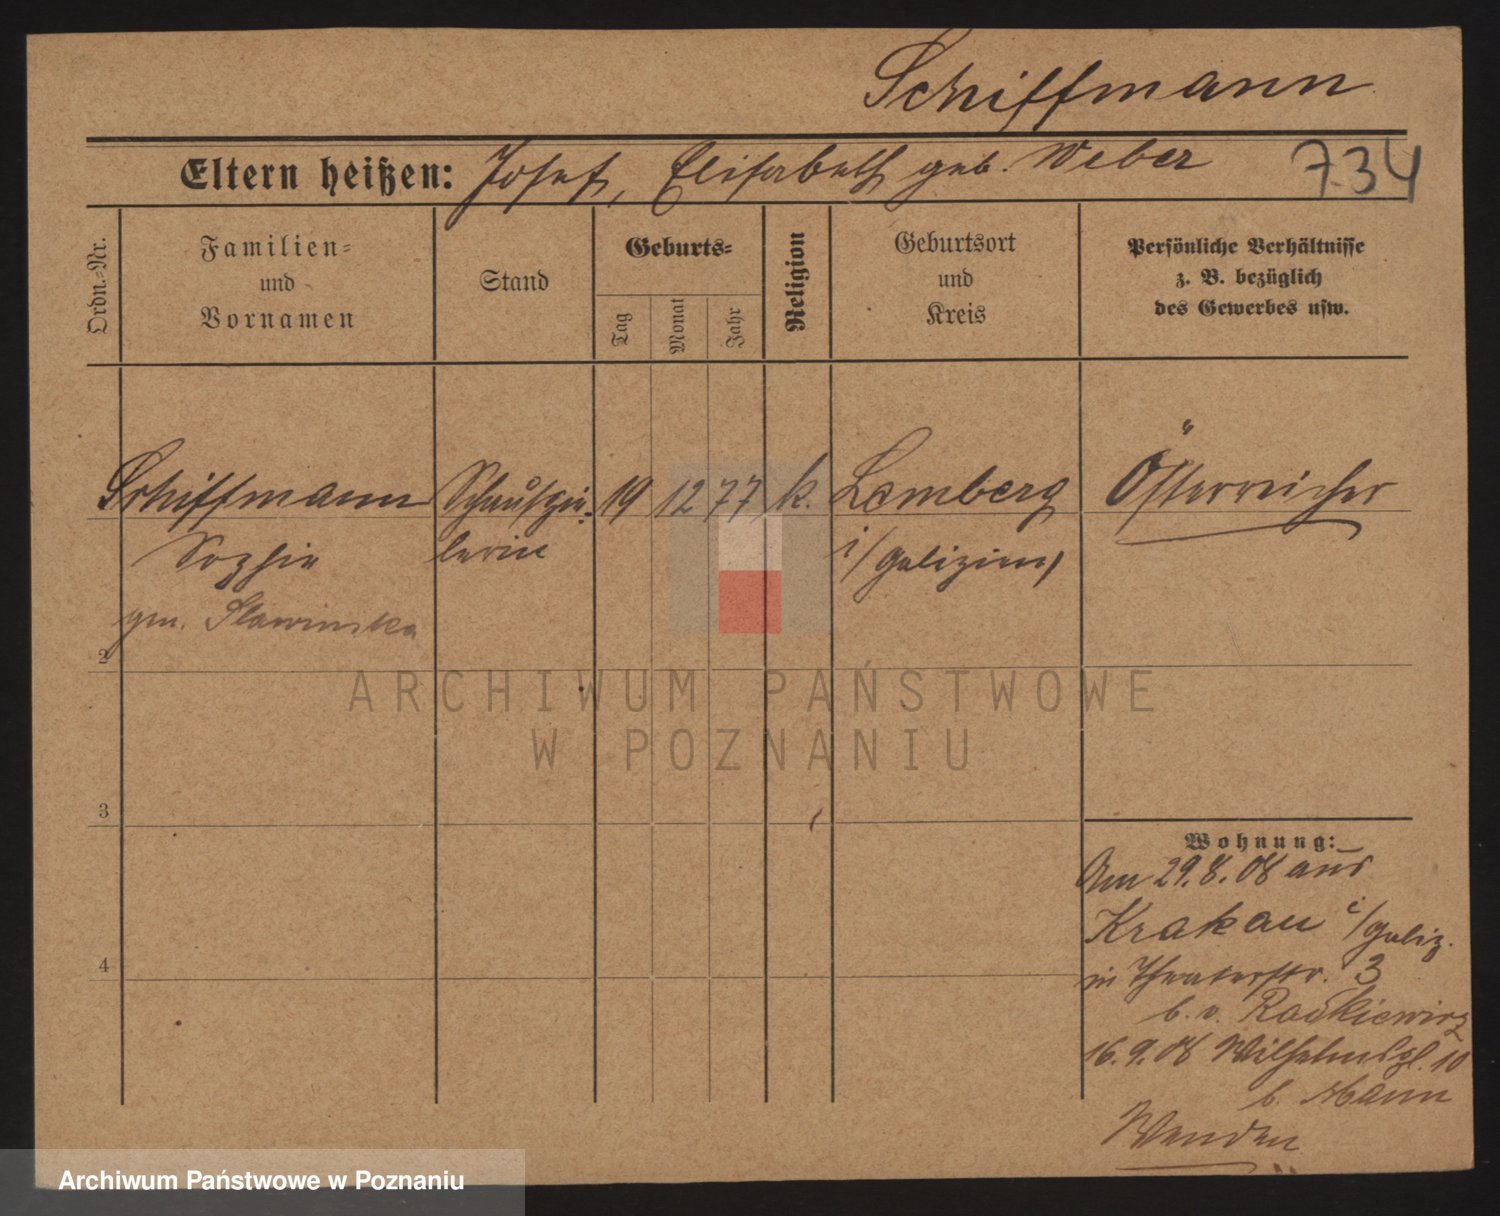 Schiffmann
Eltern heißen: Josef, Elisabeth geb. Weber 734
Ordn.-Nr.
Familien-
und
Vornamen
Stand
Geburts-
Tag
Monat
Jahr
Religion
Geburtsort
und
Kreis
Persönliche Verhältnisse
z. B. bezüglich
des Gewerbes usw.
Schiffmann Schauspie- 19 12 77 k. Lemberg Österreicher
Sophie lerin i/Galizien
gen. Slawinska
2
ARCHIWUM PAŃSTWOWE
W POZNANIU
3
Wohnung:
Am 29.8.08 aus
Krakau i/Galiz.
4
in Theaterstr. 3
b. v.
16.9.08 Wilhelmspl. 10
b. Mann
Wenden
Archiwum Państwowe w Poznaniu